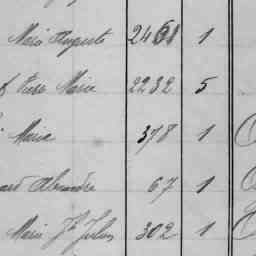 Marie Auguste 2461 1
Marie 2232 5
Maria 378 1
Alexandre 67 1
Marie Jh Julien 302 1